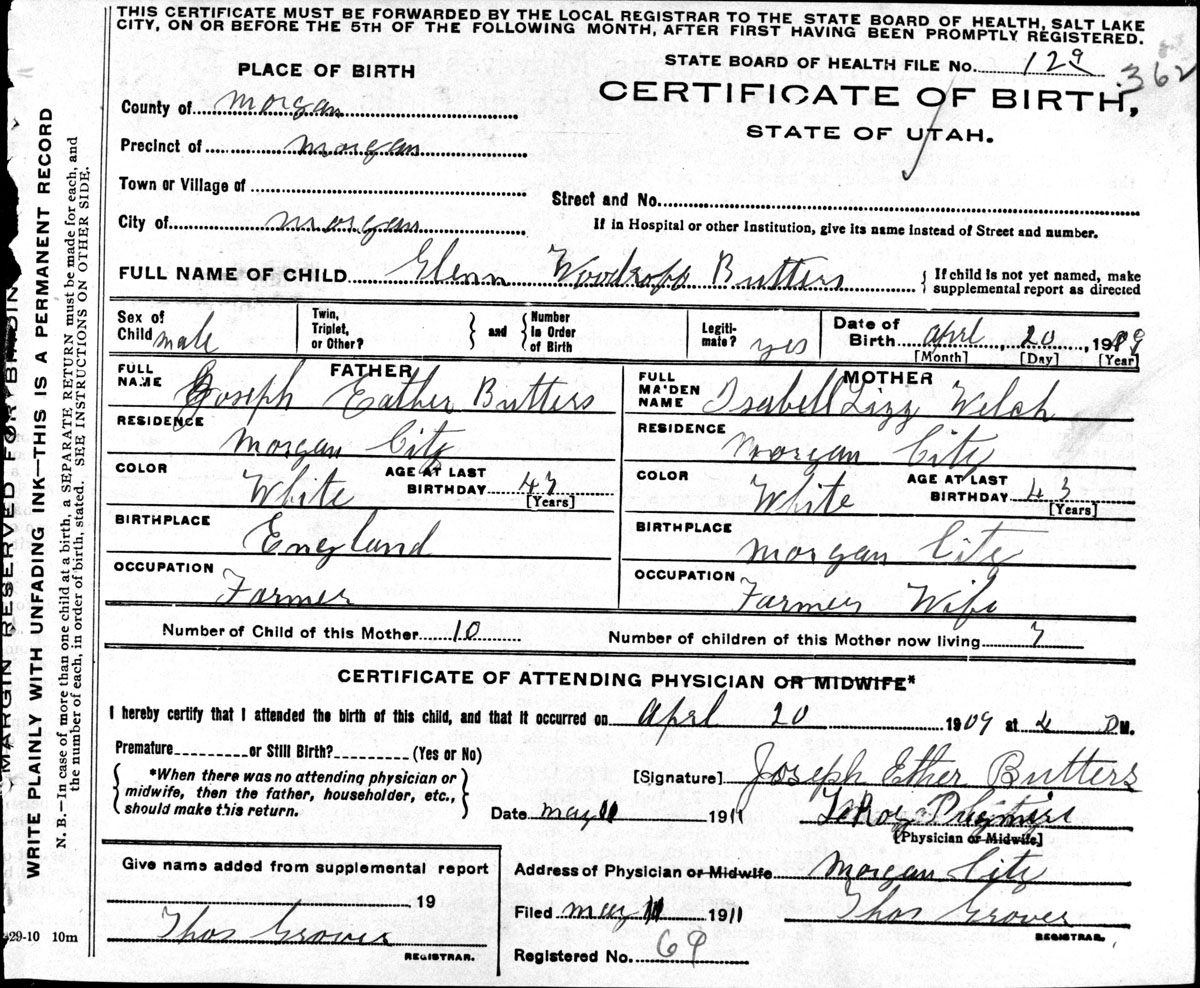 THIS CERTIFICATE MUST BE FORWARDED BY THE LOCAL REGISTRAR TO THE STATE BOARD OF HEALTH, SALT LAKE
CITY, ON OR BEFORE THE 5TH OF THE FOLLOWING MONTH, AFTER FIRST HAVING BEEN PROMPTLY REGISTERED.
STATE BOARD OF HEALTH FILE No. 129
362
PLACE OF BIRTH
CERTIFICATE OF BIRTH,
STATE OF UTAH.
County of Morgan
Precinct of Morgan
Town or Village of
Street and No.
City of Morgan
If in Hospital or other Institution, give its name instead of Street and number.
FULL NAME OF CHILD Glenn Woodroff Butters
{ If child is not yet named, make
supplemental report as directed
Sex of
Child male
Twin,
Triplet,
or Other?
} and {
Number
in Order
of Birth
Legiti-
mate? yes
Date of
Birth April, 20, 1909
[Month] [Day] [Year]
FATHER
FULL
NAME Joseph Eather Butters
RESIDENCE
Morgan City
COLOR
White
AGE AT LAST
BIRTHDAY 47
[Years]
BIRTHPLACE
England
OCCUPATION
Farmer
MOTHER
FULL
MAIDEN
NAME Isabell Lizz Welch
RESIDENCE
Morgan City
COLOR
White
AGE AT LAST
BIRTHDAY 43
[Years]
BIRTHPLACE
Morgan City
OCCUPATION
Farmers Wife
Number of Child of this Mother 10
Number of children of this Mother now living 7
CERTIFICATE OF ATTENDING PHYSICIAN OR MIDWIFE*
I hereby certify that I attended the birth of this child, and that it occurred on April 20 1909 at M.
Premature or Still Birth? (Yes or No)
{ *When there was no attending physician or
midwife, then the father, householder, etc.,
should make this return. }
[Signature] Joseph Ether Butters
Date May 11 1911
LeRoy
[Physician or Midwife]
Give name added from supplemental report
19
Thos Grover
REGISTRAR.
Address of Physician or Midwife Morgan City
Filed May 11 1911 Thos Grover
REGISTRAR.
Registered No. 69
29-10 10m
MARGIN RESERVED FOR BINDING
WRITE PLAINLY WITH UNFADING INK—THIS IS A PERMANENT RECORD
N. B.—In case of more than one child at a birth, a SEPARATE RETURN must be made for each, and
the number of each, in order of birth, stated. SEE INSTRUCTIONS ON OTHER SIDE.